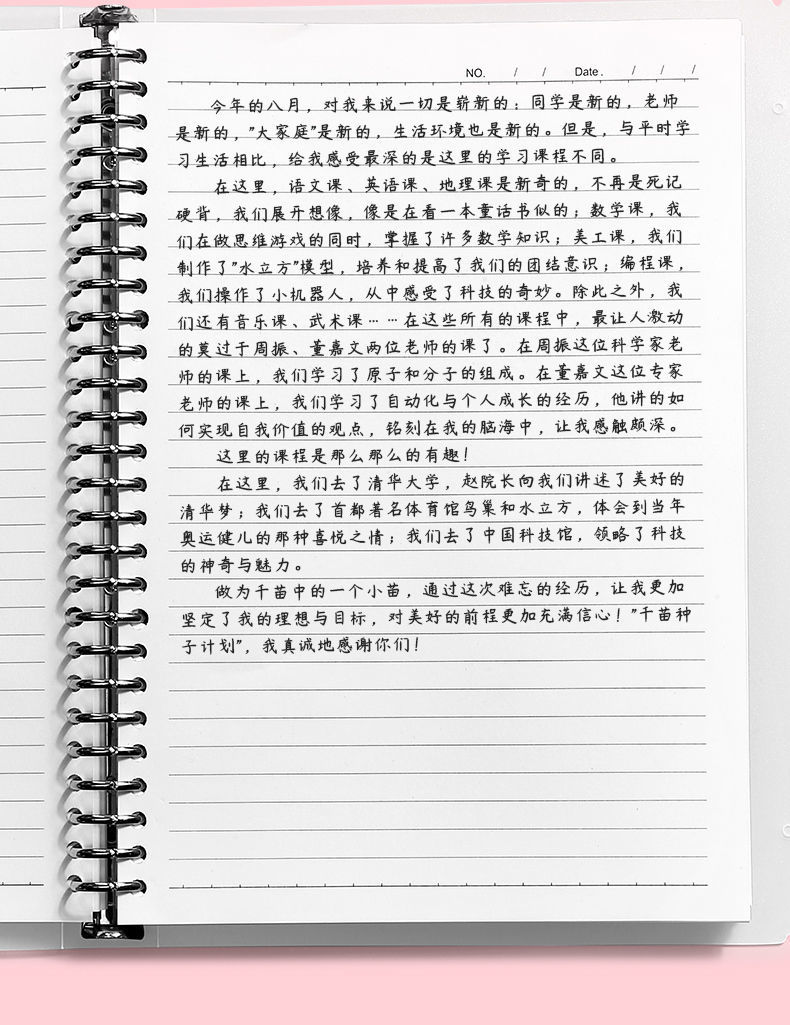 NO. / / Date. / / /
今年的八月，对我来说一切是崭新的：同学是新的，老师
是新的，"大家庭"是新的，生活环境也是新的。但是，与平时学
习生活相比，给我感受最深的是这里的学习课程不同。
在这里，语文课、英语课、地理课是新奇的，不再是死记
硬背，我们展开想像，像是在看一本童话书似的；数学课，我
们在做思维游戏的同时，掌握了许多数学知识；美工课，我们
制作了"水立方"模型，培养和提高了我们的团结意识；编程课，
我们操作了小机器人，从中感受了科技的奇妙。除此之外，我
们还有音乐课、武术课……在这些所有的课程中，最让人激动
的莫过于周振、董嘉文两位老师的课了。在周振这位科学家老
师的课上，我们学习了原子和分子的组成。在董嘉文这位专家
老师的课上，我们学习了自动化与个人成长的经历，他讲的如
何实现自我价值的观点，铭刻在我的脑海中，让我感触颇深。
这里的课程是那么那么的有趣！
在这里，我们去了清华大学，赵院长向我们讲述了美好的
清华梦；我们去了首都著名体育馆鸟巢和水立方，体会到当年
奥运健儿的那种喜悦之情；我们去了中国科技馆，领略了科技
的神奇与魅力。
做为千苗中的一个小苗，通过这次难忘的经历，让我更加
坚定了我的理想与目标，对美好的前程更加充满信心！"千苗种
子计划"，我真诚地感谢你们！